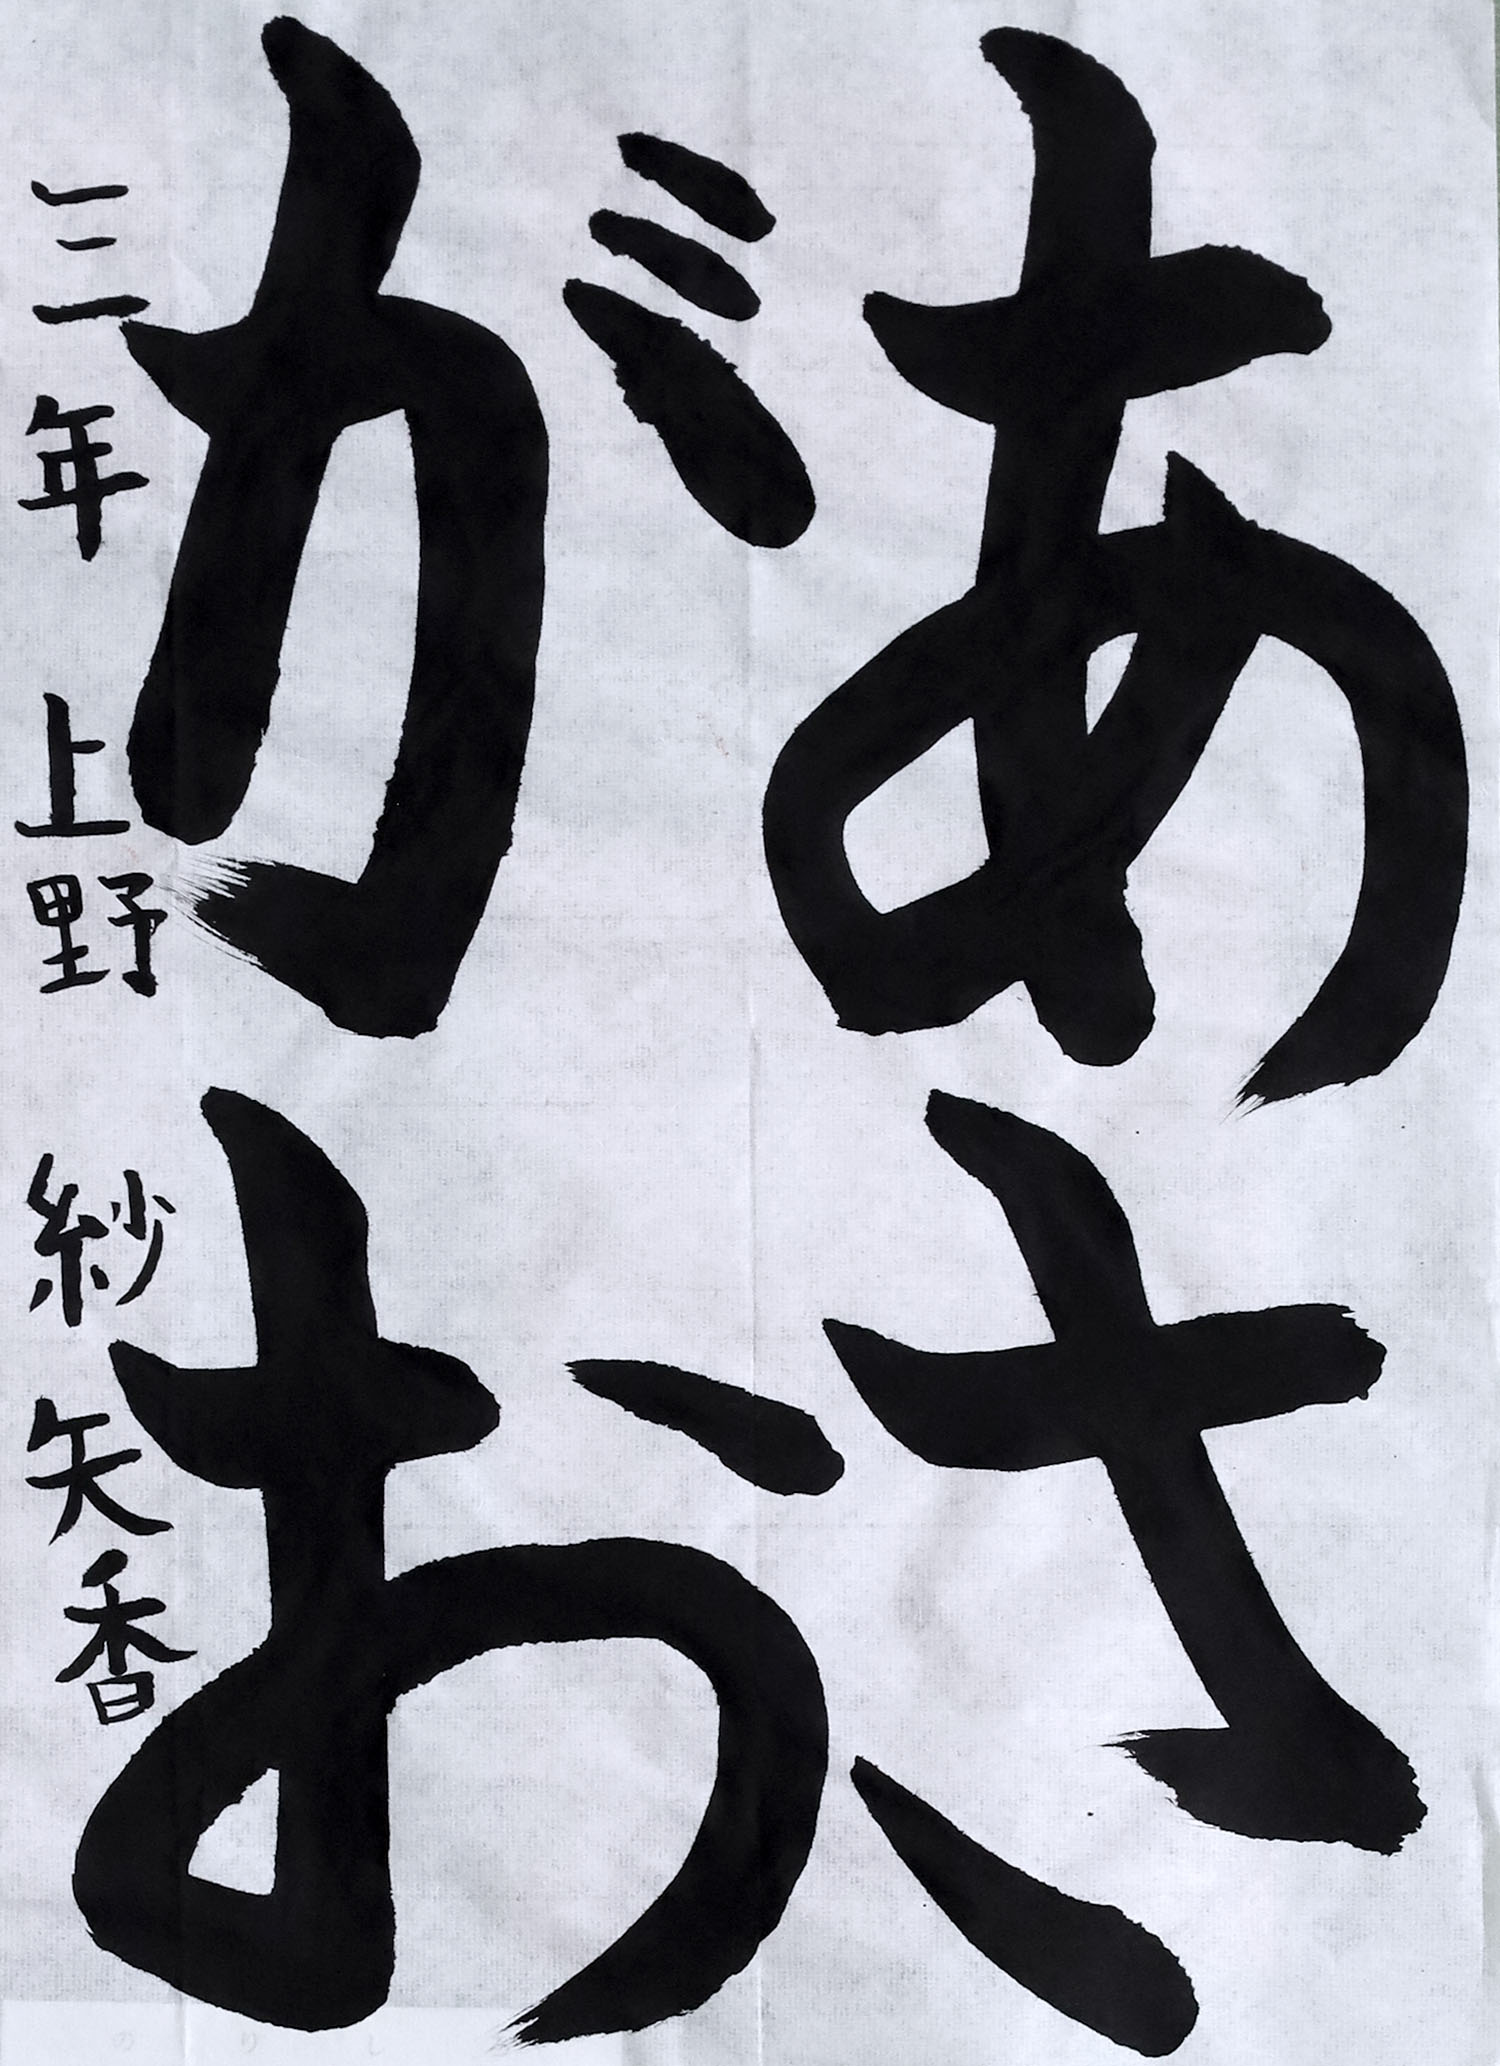 あさ
がお
三年 上野 紗矢香